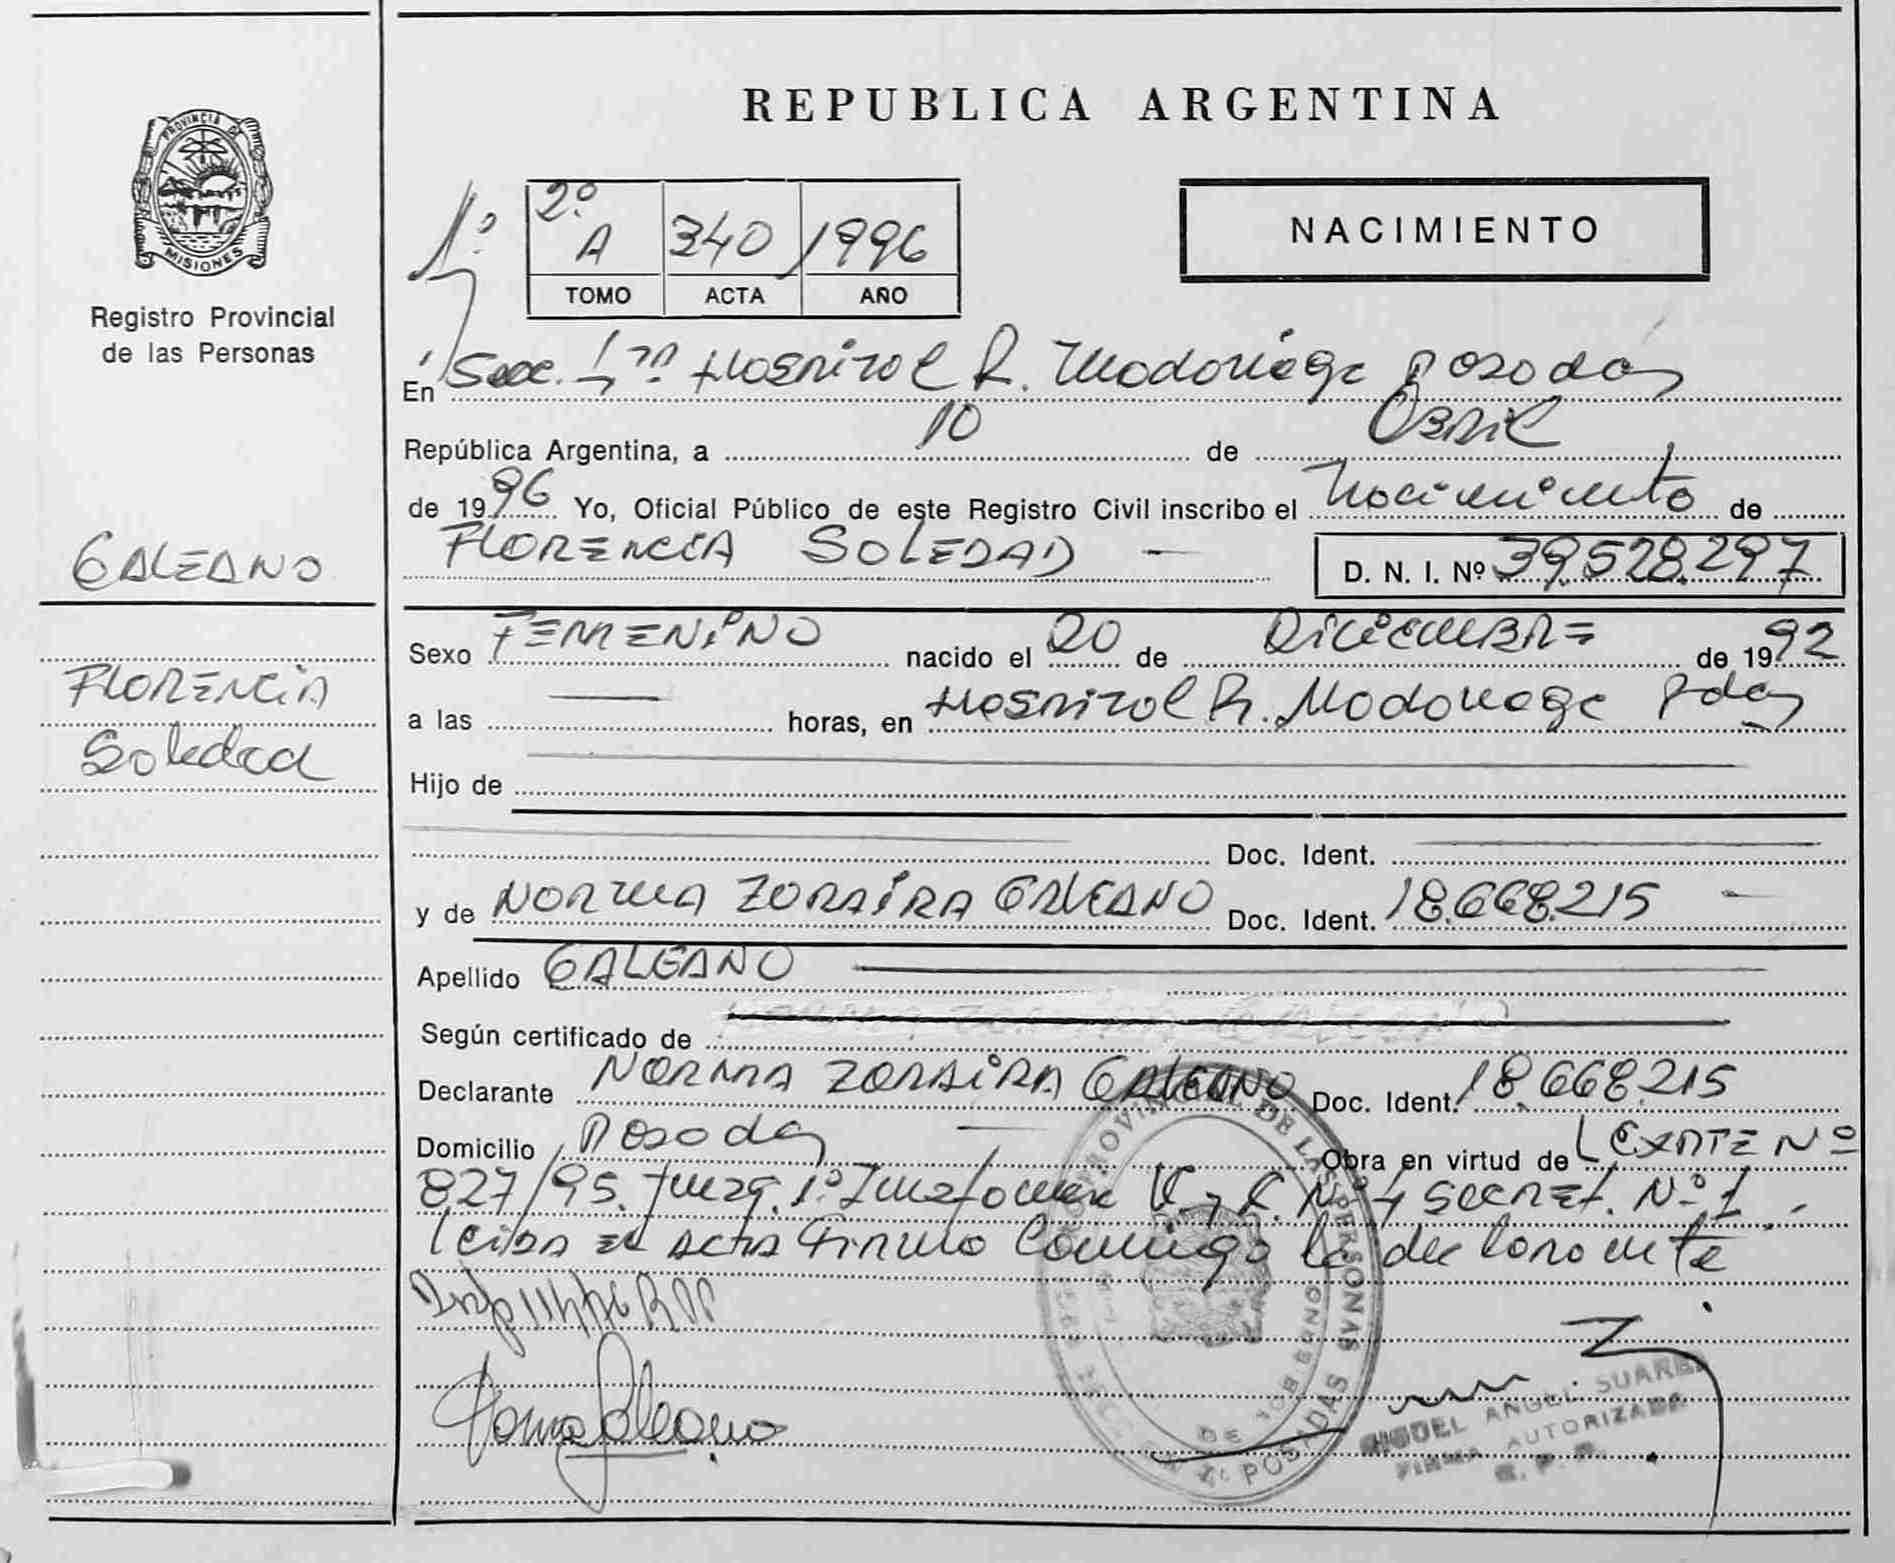 PROVINCIA DE
MISIONES
Registro Provincial
de las Personas
GALEANO
FLORENCIA
Soledad
REPUBLICA ARGENTINA
1º
2º
A 340 1996
TOMO ACTA AÑO
NACIMIENTO
En Secc. 1ra Hospital R. Madariaga Posadas
República Argentina, a 10 de Abril
de 1996 Yo, Oficial Público de este Registro Civil inscribo el Nacimiento de
FLORENCIA SOLEDAD — D. N. I. Nº 39.528.297
Sexo FEMENINO nacido el 20 de DICIEMBRE de 1992
a las — horas, en Hospital R. Madariaga Pdas
Hijo de
Doc. Ident.
y de NORMA ZORAIRA GALEANO Doc. Ident. 18.668.215 —
Apellido GALEANO
Según certificado de
Declarante NORMA ZORAIRA GALEANO Doc. Ident. 18.668.215
Domicilio Posadas — Obra en virtud de EXPTE Nº
827/95. Juzg. 1º Inst. C. y C. Nº 4 SECRET. Nº 1.-
Leida el Acta Firma Conmigo la declarante
Norma Galeano
PROVINCIAL DE LAS PERSONAS
DE GOBIERNO
POSADAS
MIGUEL ANGEL SUAREZ
FIRMA AUTORIZADA